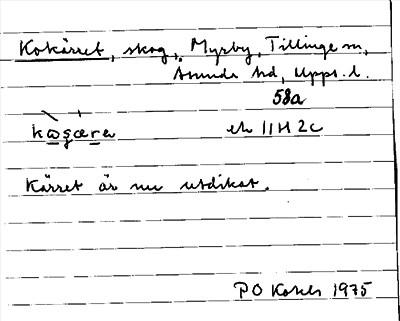 Kokärret, skog, Myrby, Tillinge sn,
Åsunda hd, Uppl. l.
58a
kωgæra
ek 11H 2c
Kärret är nu utdikat.
P O 1975